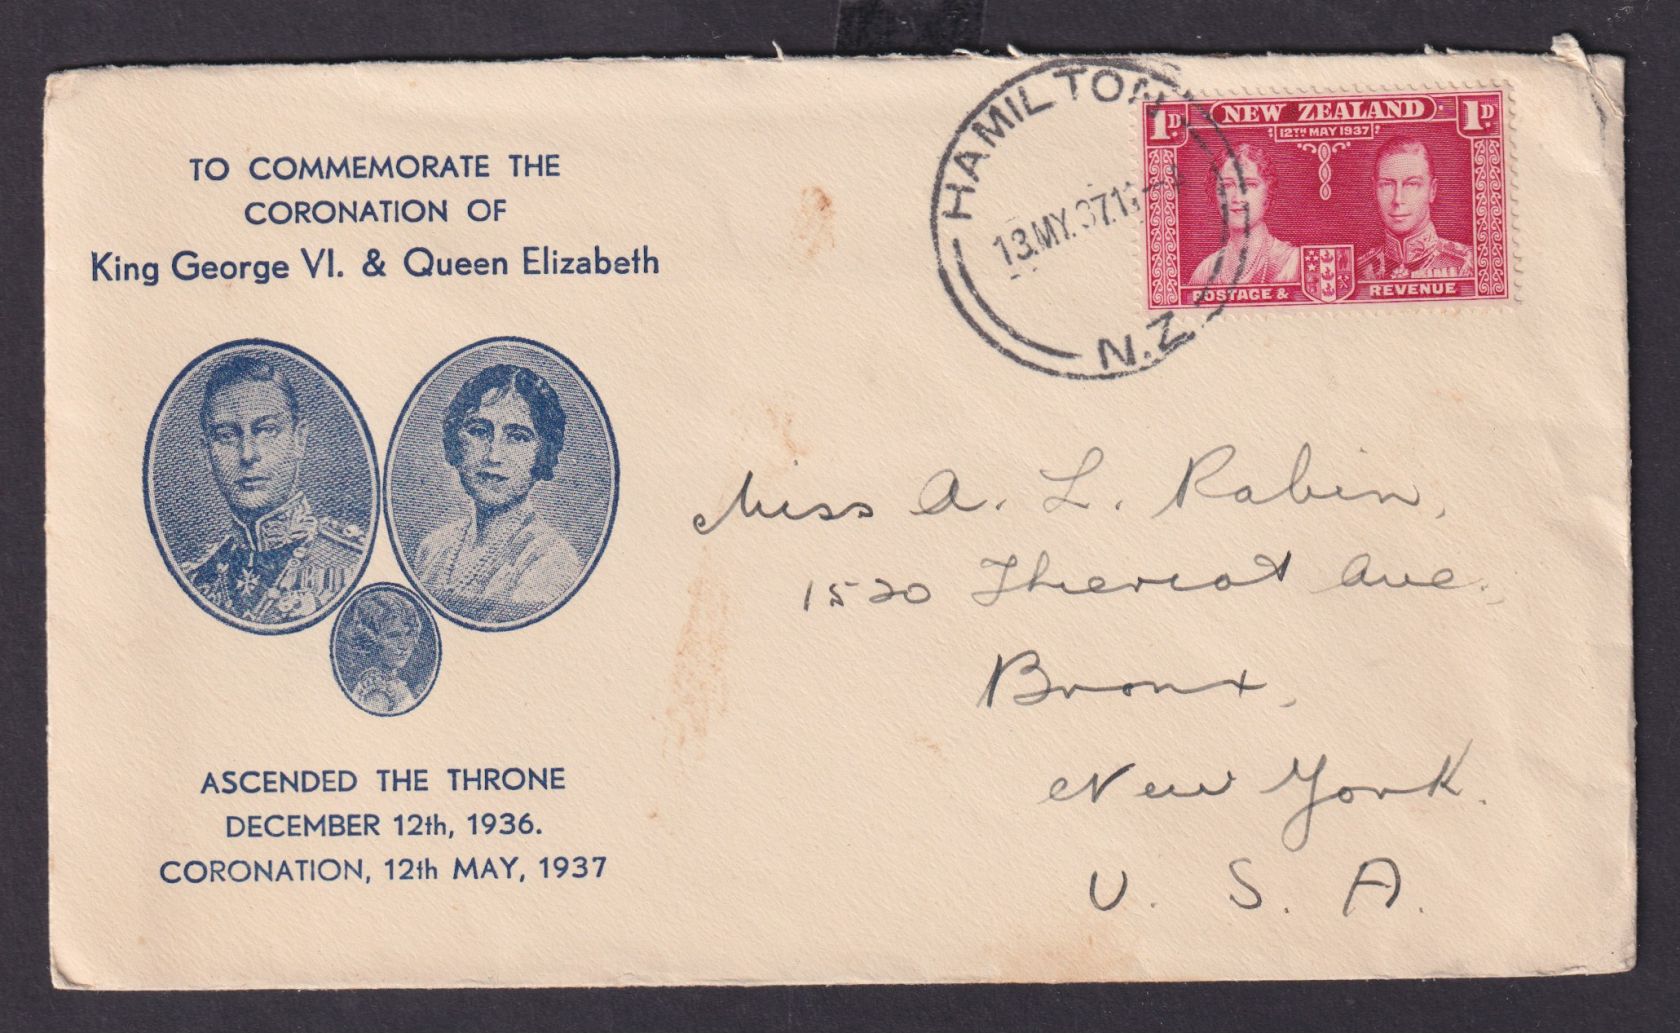 TO COMMEMORATE THE
CORONATION OF
King George VI. & Queen Elizabeth
ASCENDED THE THRONE
DECEMBER 12th, 1936.
CORONATION, 12th MAY, 1937
HAMILTON
13.MY.37.
N.Z
1D NEW ZEALAND 1D
12TH MAY 1937
POSTAGE & REVENUE
Miss A. L. Rabin,
1520 Theriot Ave.,
Bronx,
New York.
U. S. A.